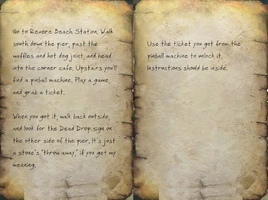 Go to Revere Beach Station. Walk
south down the pier, past the
waffles and hot dog joint, and head
into the corner cafe. Upstairs you'll
find a pinball machine. Play a game,
and grab a ticket.
When you got it, walk back outside,
and look for the Dead Drop sign on
the other side of the pier. It's just
a stone's "throw away," if you get my
meaning.
Use the ticket you got from the
pinball machine to unlock it.
Instructions should be inside.